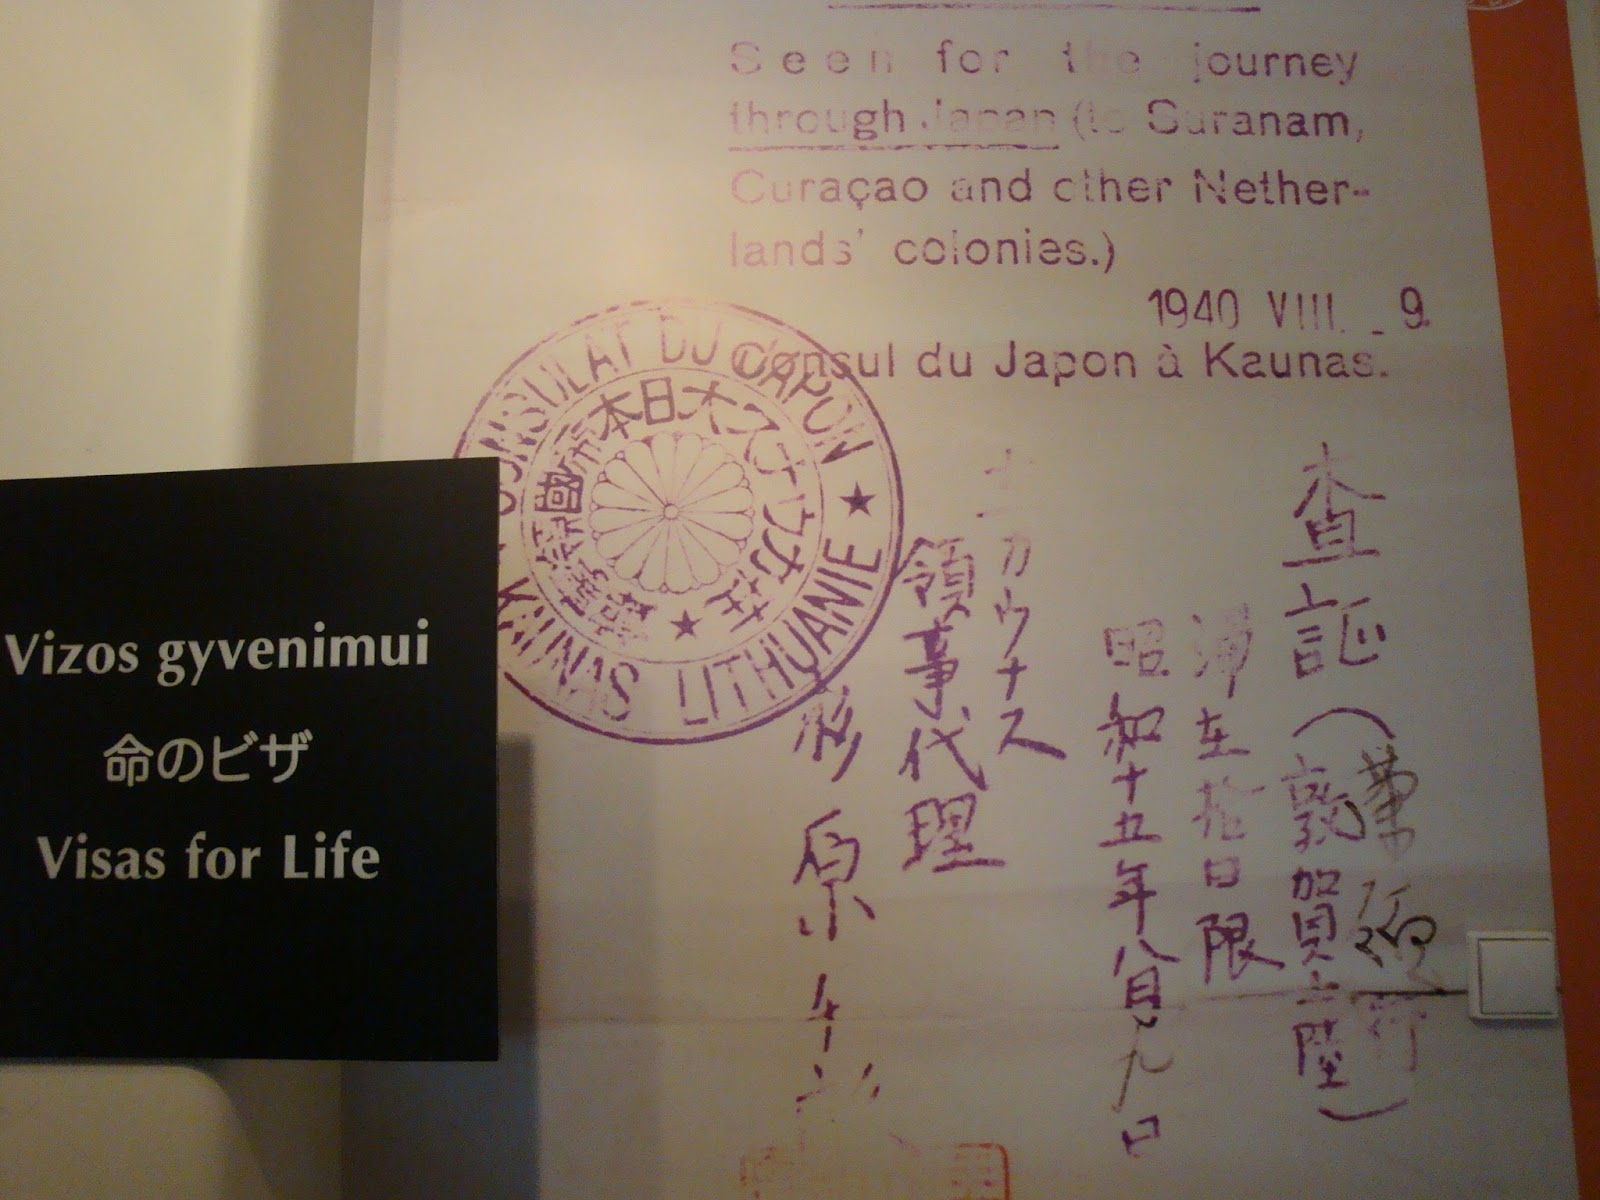 Seen for the journey
through Japan (to Suranam,
Curaçao and other Nether-
lands' colonies.)
1940 VIII. _ 9.
Consul du Japon à Kaunas.
CONSULAT DU JAPON
★ KAUNAS LITHUANIE ★
在カウナス大日本帝國領事館
査証(敦賀上陸)
滞在拾日限
昭和十五年八月九日
在カウナス
領事代理
杉原千
Vizos gyvenimui
命のビザ
Visas for Life